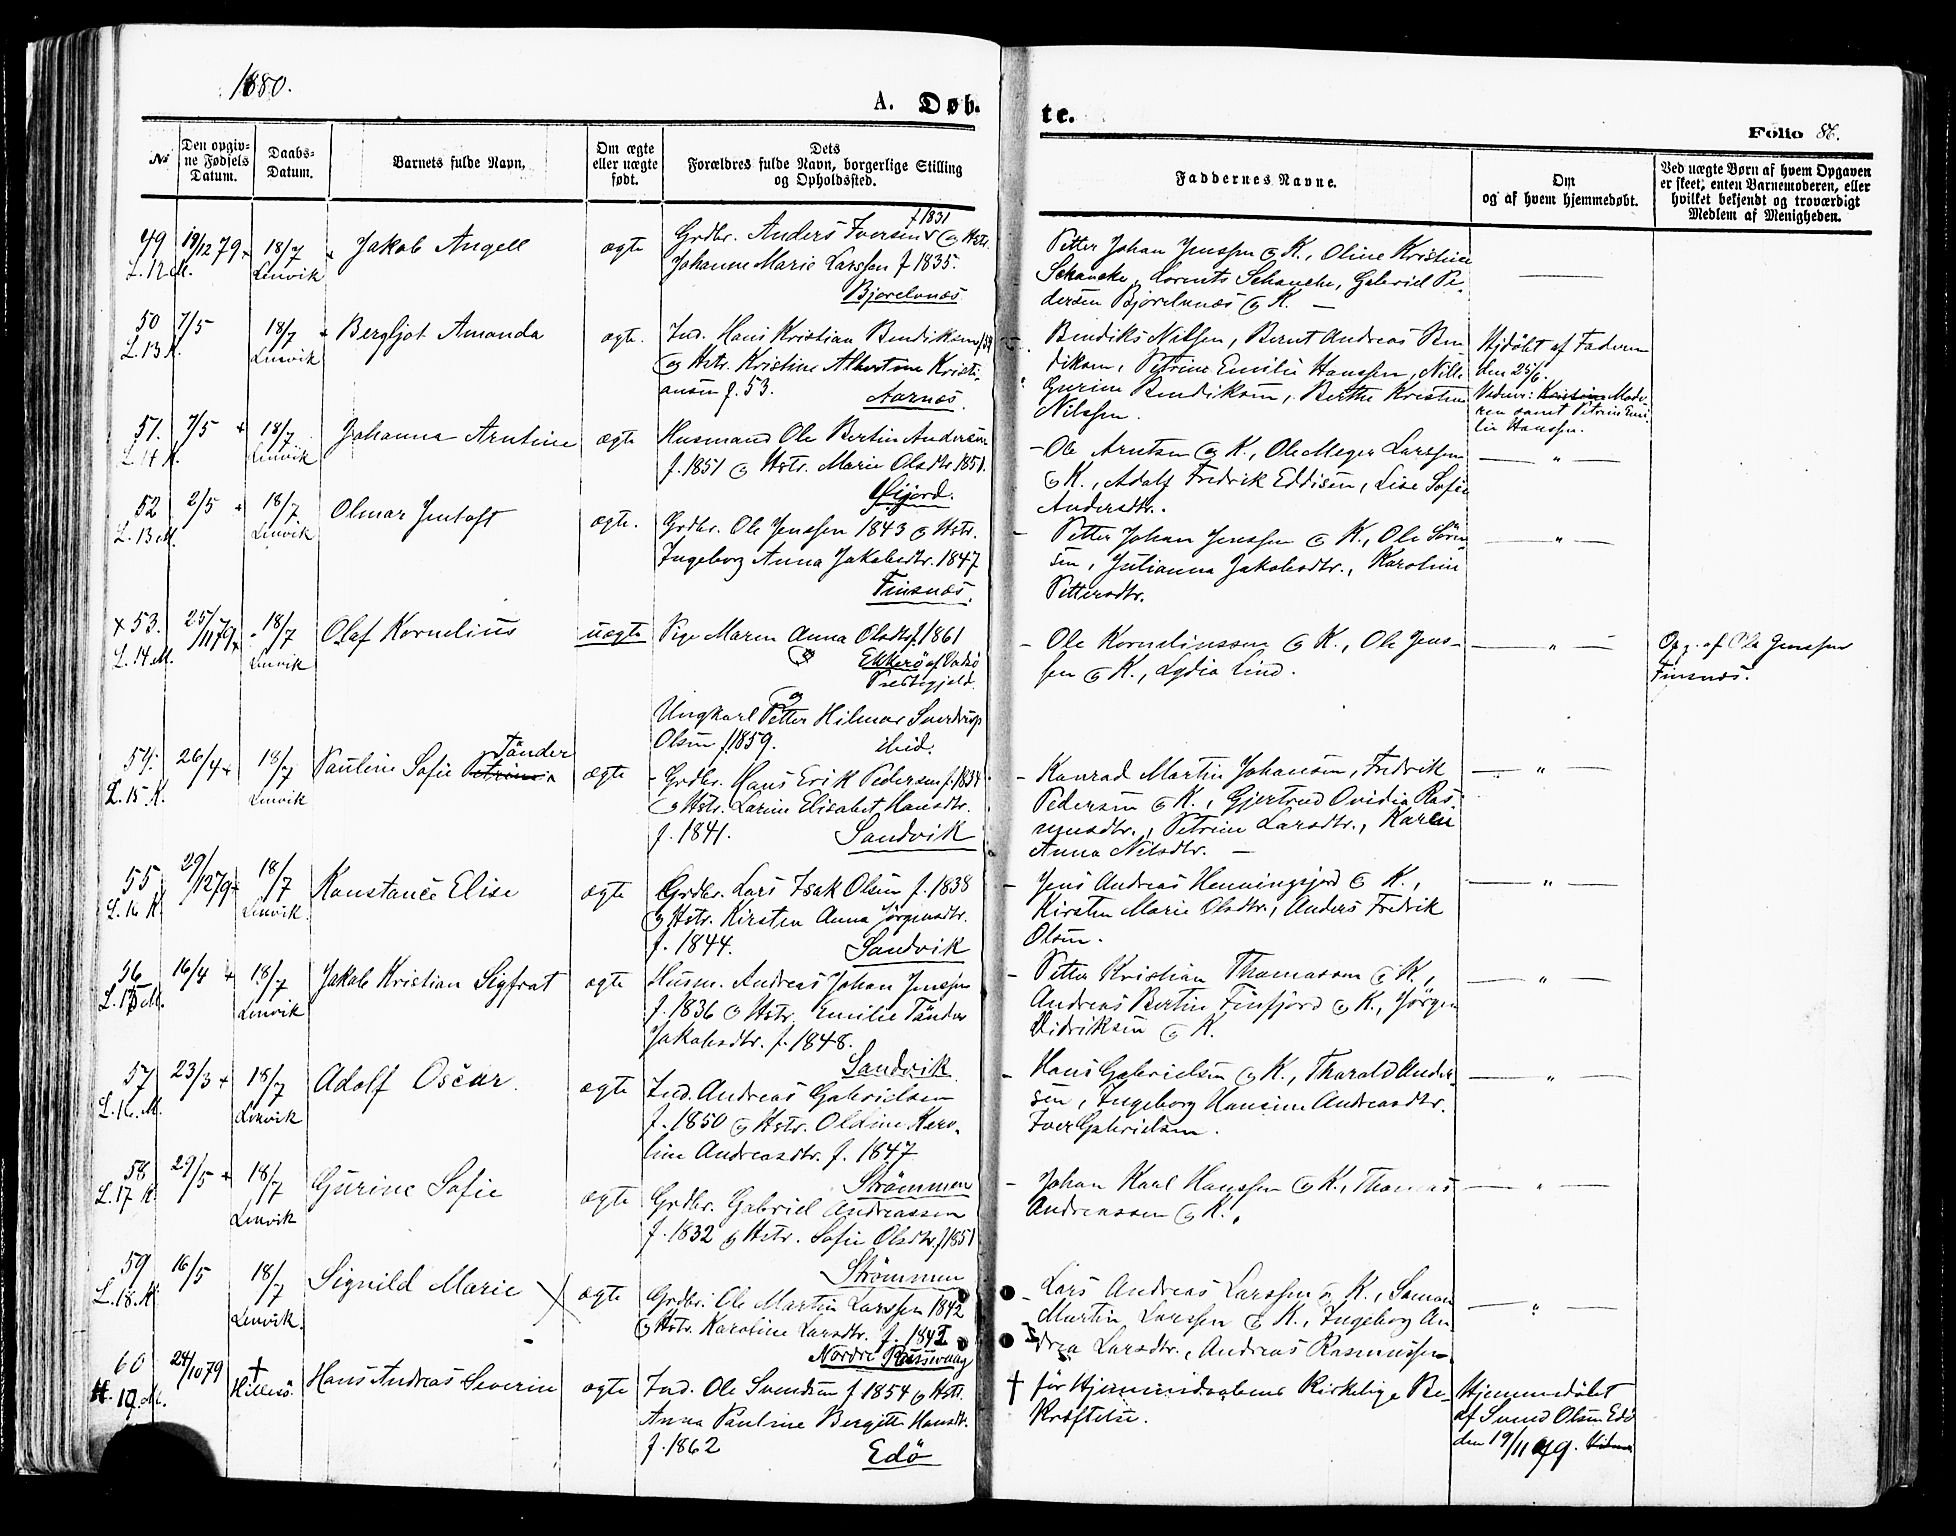 1880.
A. Døb-
te.
Folio 86.
No
Den opgiv-
ne Fødsels
Datum.
Daabs-
Datum.
Barnets fulde Navn.
Om ægte
eller uægte
født.
Dets
Forældres fulde Navn, borgerlige Stilling
og Opholdssted.
Faddernes Navne.
Om
og af hvem hjemmedøbt.
Ved uægte Børn af hvem Opgaven
er skeet; enten Barnemoderen, eller
hvilket bekjendt og troværdigt
Medlem af Menigheden.
49
L. 12 M.
19/12 79
18/7
Lenvik
Jakob Angell
ægte
f 1831
Grdbr. Anders Iversen og Hstr.
Johanne Marie Larssen f 1835.
Bjorelvnæs
Petter Johan Jenssen og K., Oline Kristine
Schancke, Lorents Schancke, Gabriel Pe-
dersen Bjorelvnæs og K. —
50
L. 13 K.
7/5
18/7
Lenvik
Bergljot Amanda
ægte.
Ind. Hans Kristian Bendiksen
og Hstr. Kristine Albertine Kristi-
ansen f. 53.
Aarnæs.
Bendiks Nilsen, Bernt Andreas Ben-
diksen, Petrine Emilie Hanssen,
Gurine Bendiksen, Berthe Kristine
Nilssen.
Hjdøbt af Faderen
den 25/6.
Vidner: Kristine Mode-
ren samt Petrine Emi-
lie Hanssen.
51.
L. 14 K.
7/5
18/7
Lenvik
Johanna Arntine
ægte
Husmand Ole Bertin Andersen
f. 1851 og Hstr. Marie Olsdtr 1851.
Gijord.
Ole Arntsen og K., Ole Meyer Larssen
og K., Adolf Fredrik Eddisen, Lise Sofie
Andersdtr.
— „ —
52
L. 13 M.
2/5
18/7
Lenvik
Olmar Jentoft
ægte.
Grdbr. Ole Jenssen 1843 og Hstr.
Ingeborg Anna Jakobsdtr. 1847
Finsnæs.
Petter Johan Jenssen og K., Ole Sören-
sen, Julianna Jakobsdtr., Karoline
Pettersdtr.
— „ —
× 53.
L. 14 M.
25/11 79
18/7
Lenvik
Olaf Kornelius
uægte
Pige Maren Anna Olsdtr f. 1861
Ekkerö af Vadsö
Prestegjeld.
og
Ungkarl Petter Hilmar Sverdrup
Olsen f. 1859. ibid.
Ole Korneliussen og K., Ole Jens-
sen og K., Lydia Lind.
— „ —
Opg. af Ole Jenssen
Finsnæs.
54.
L. 15 K.
26/4
18/7
Lenvik
Tånder
Pauline Sofie Petrine
ægte
Grdbr. Hans Erik Pedersen f. 1834
og Hstr. Larine Elisabet Hansdtr.
f. 1841. Sandvik
Konrad Martin Johansen, Fredrik
Pedersen og K., Gjertrud Ovidia Ras-
musdtr., Petrine Larsdtr., Karen
Anna Nilsdtr. —
— „ —
55
L. 16 K.
29/12 79
18/7
Lenvik
Konstance Elise
ægte
Grdbr. Lars Isak Olsen f. 1838
og Hstr. Kirsten Anna Jörgensdtr.
f. 1844. Sandvik
Jens Andreas Henningsjord og K.,
Kirsten Marie Olsdtr., Anders Fredrik
Olsen.
— „ —
56
L. 15 M.
16/4
18/7
Lenvik
Jakob Kristian Sigfrat
ægte
Husm. Andreas Johan Jenssen
f. 1836 og Hstr. Emilie Tånder
Jakobsdtr. f. 1848.
Sandvik
Petter Kristian Thomassen og K.,
Andreas Bertin Finfjord og K., Jörgen
Didriksen og K.
— „ —
57
L. 16 M.
23/3
18/7
Lenvik
Adolf Oscar
ægte
Ind. Andreas Gabrielsen
f. 1850 og Hstr. Oldine Karo-
line Andreasdtr. f. 1847
Strömmen
Hans Gabrielsen og K., Tharald Ander-
sen, Ingeborg Hansine Andreasdtr.
Iver Gabrielsen.
— „ —
58
L. 17 K.
29/5
18/7
Lenvik
Gurine Sofie
ægte
Grdbr. Gabriel Andreassen
f. 1832 og Hstr. Sofie Olsdtr. f 1851
Strömmen
Johan Karl Hanssen og K., Thomas
Andreassen og K.,
— „ —
59
L. 18 K.
16/5
18/7
Lenvik.
Signild Marie
ægte
Grdbr. Ole Martin Larssen 1842
og Hstr. Karoline Larsdtr. f. 1842
Nordre
Lars Andreas Larssen og K., Simon
Martin Larssen og K., Ingeborg An-
drea Larsdtr., Andreas Rasmussen
— „
60
H. 19 M.
24/10 79
†
Hillesö.
Hans Andreas Severin
ægte
Ind. Ole Svendsen f 1854 og Hstr.
Anna Pauline Bergitte Hansdt.
f. 1862
Edö
† för Hjemmedaabens Kirkelige Be-
kræftelse.
Hjemmedöbt
af Svend Olsen Edö
den 19/11 79.